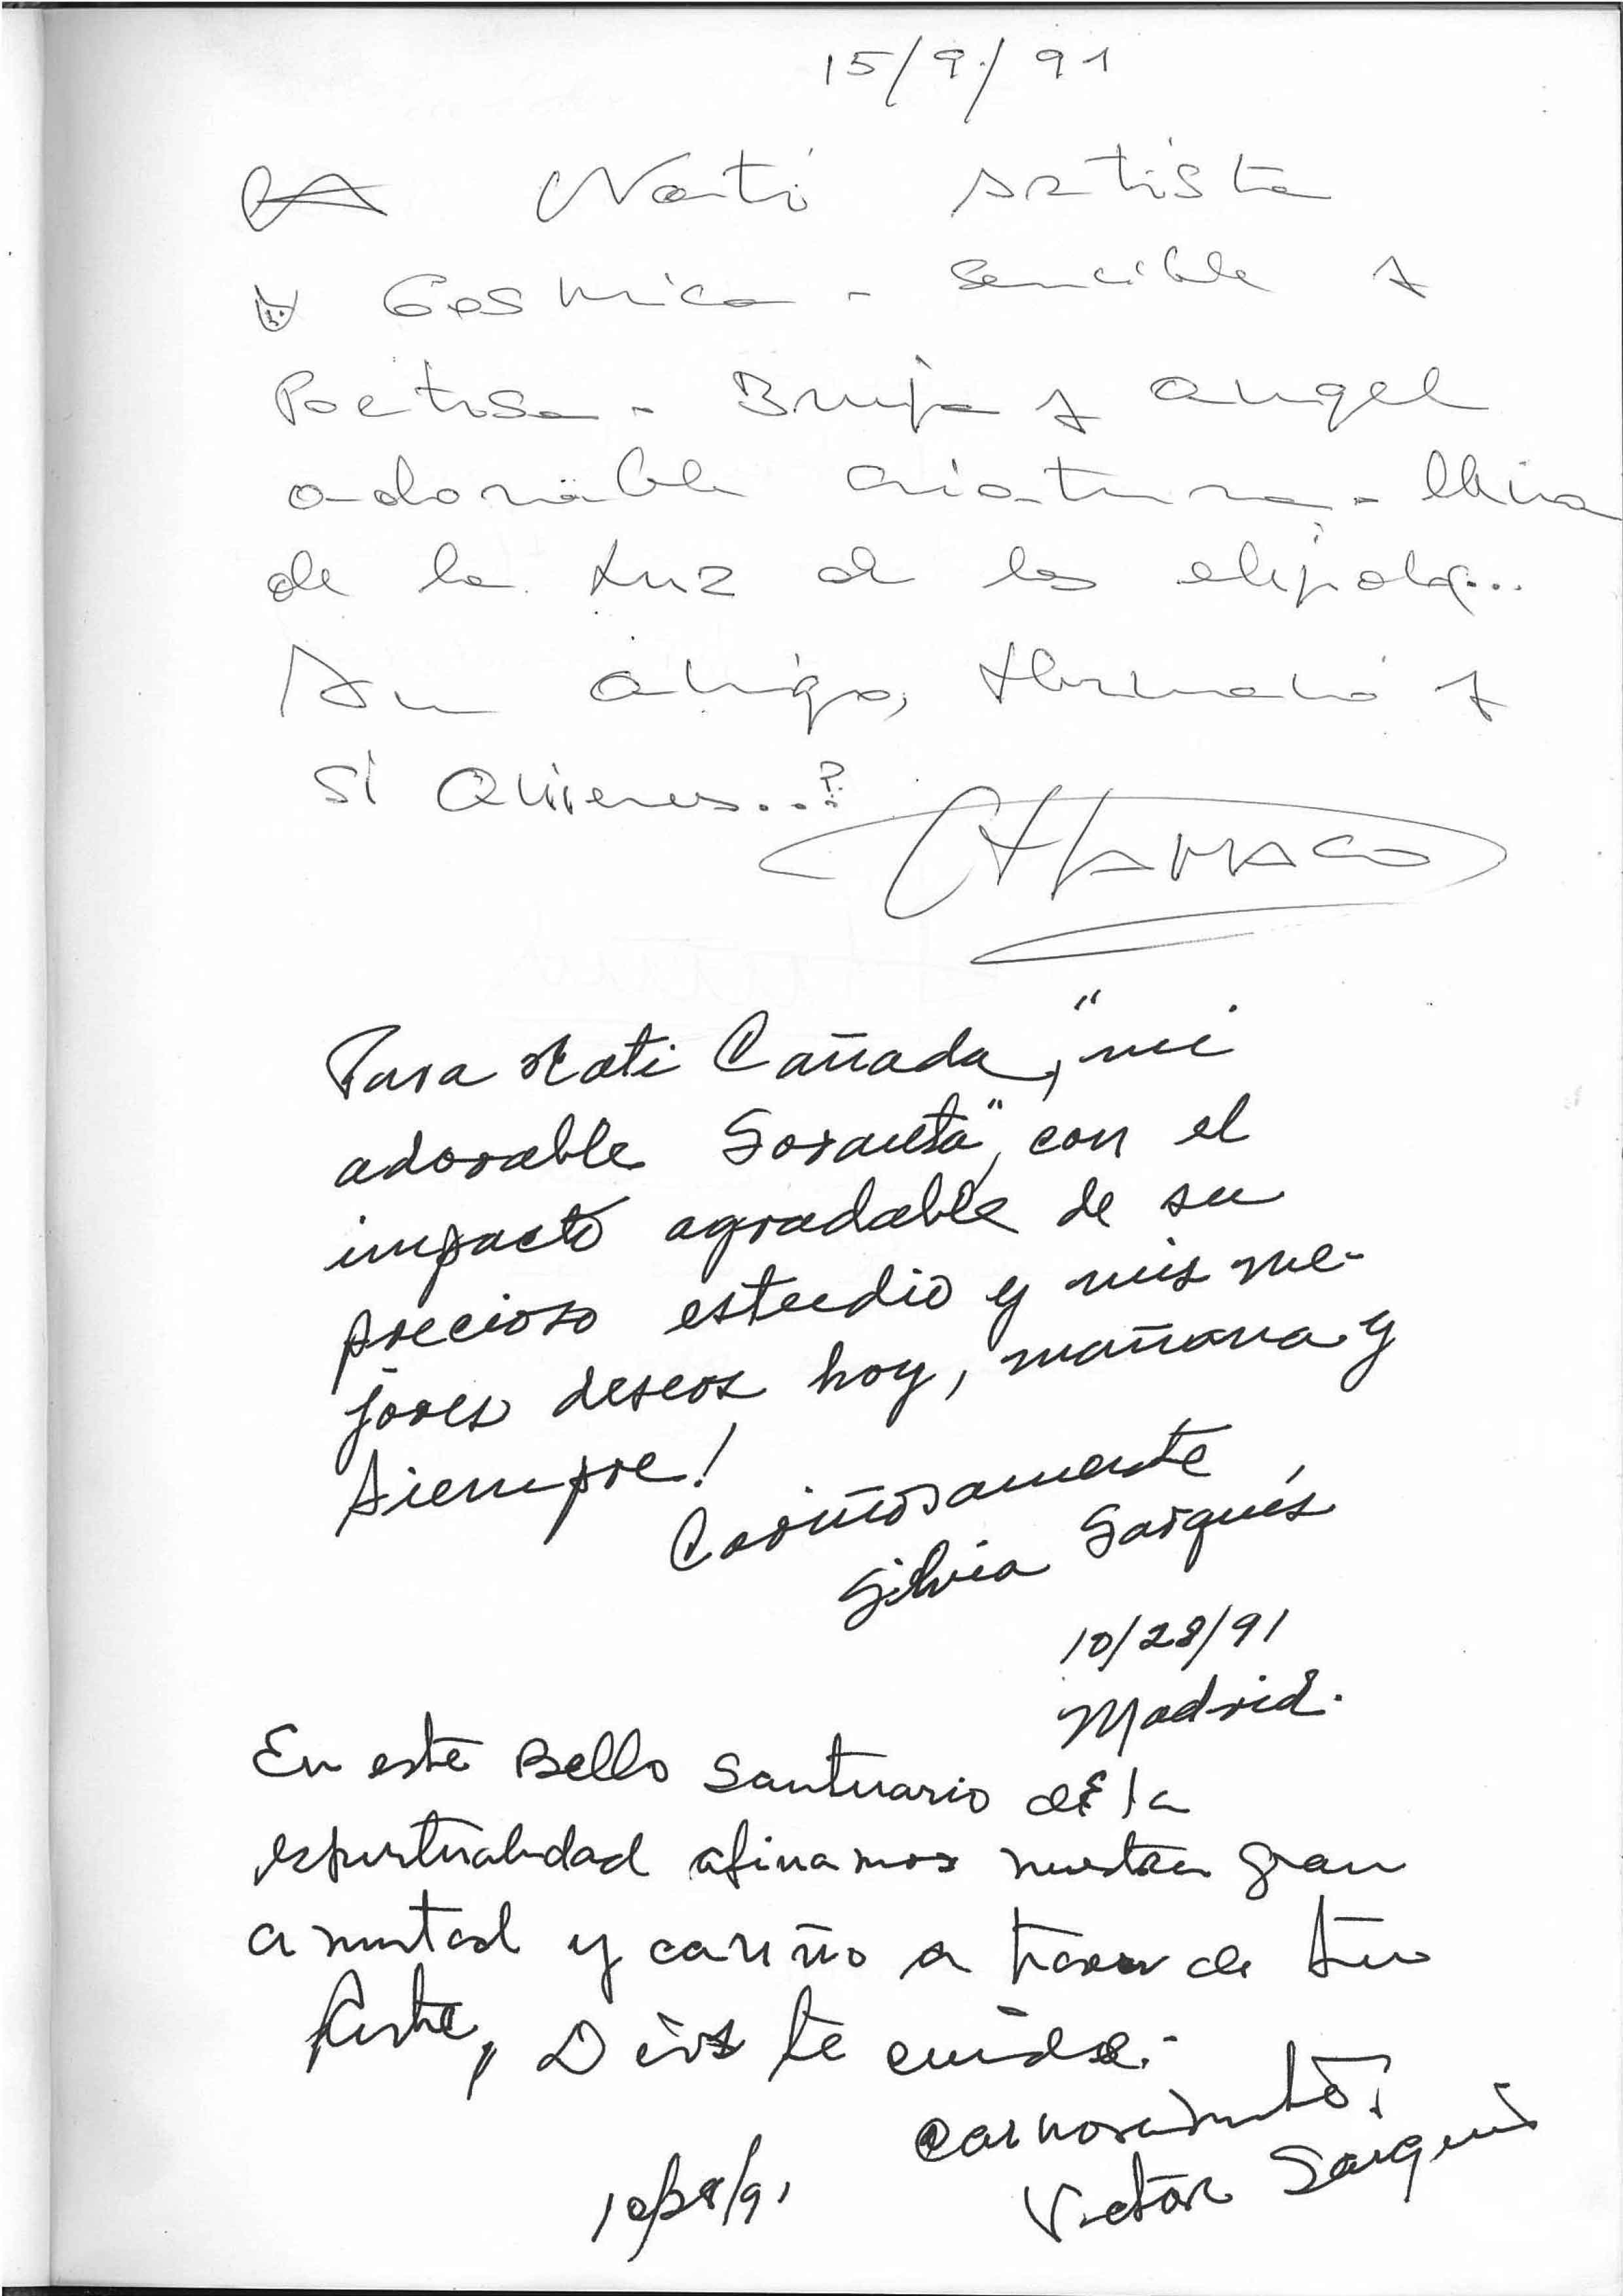 15/9/91
A Nati Artista
Cosmica - Sencible y
Poetisa - Bruja y angel
adorable criatura -
de la Luz de los
Su amigo, Hermano y
Si Quieres..?
Para Nati Cañada, "mi
adorable Soraita", con el
impacto agradable de su
precioso estudio y mis me-
jores deseos hoy, mañana y
siempre!
Cariñosamente
Silvia Sarqués
10/28/91
Madrid.
En este Bello Santuario de la
espiritualidad afinamos nuestra gran
amistad y cariño a traves de tu
Arte, Dios te cuide.-
Cariñosamente,
Victor Sarquis
10/28/91